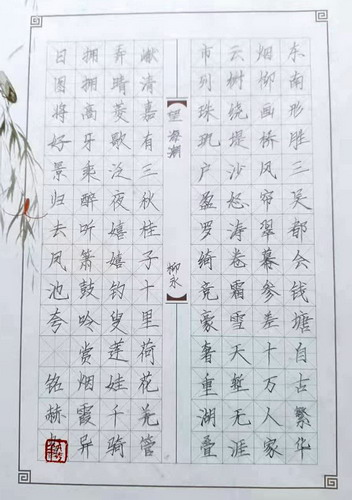 东南形胜三吴都会钱塘自古繁华
烟柳画桥风帘翠幕参差十万人家
云树绕堤沙怒涛卷霜雪天堑无涯
市列珠玑户盈罗绮竞豪奢重湖叠
【望海潮 柳永】
献清嘉有三秋桂子十里荷花羌管
弄晴菱歌泛夜嬉嬉钓叟莲娃千骑
拥拥高牙乘醉听箫鼓吟赏烟霞异
日图将好景归去凤池夸 铭赫